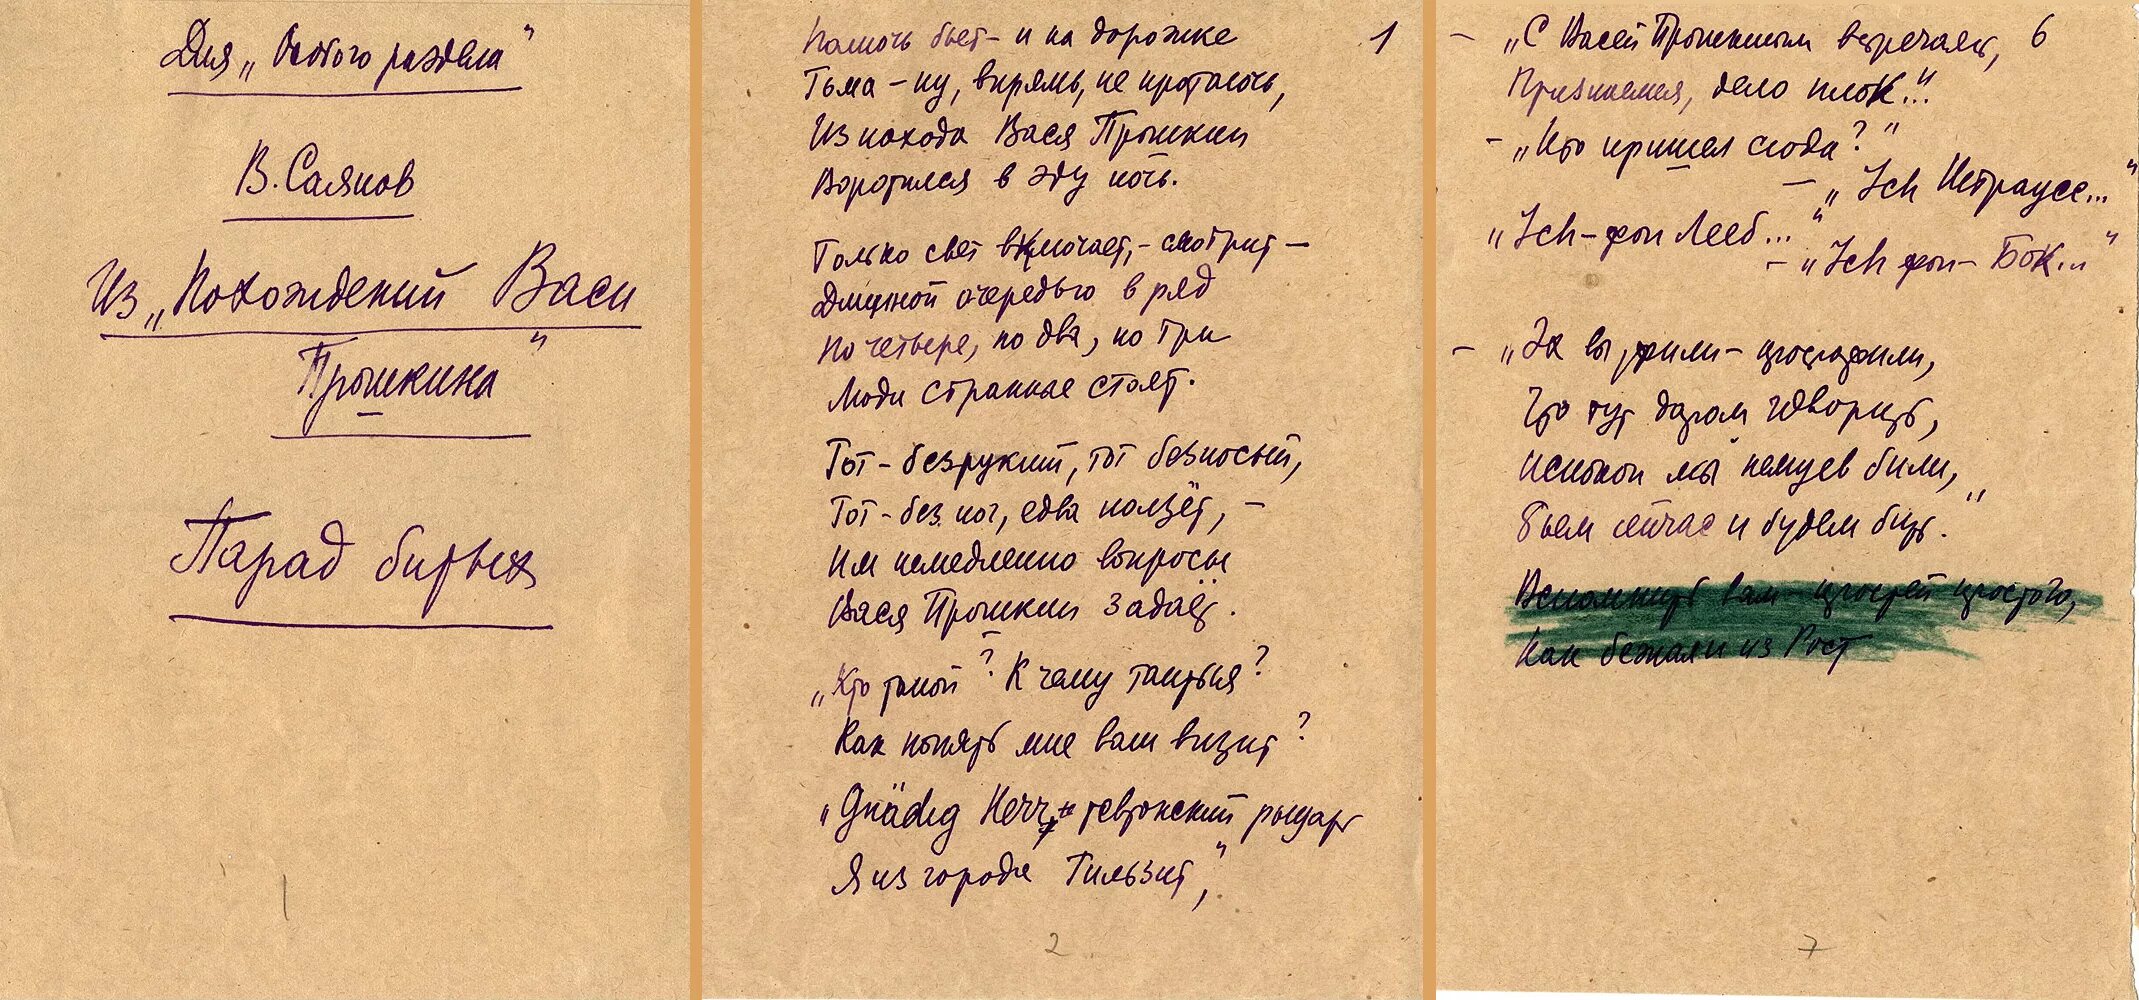 Для „Особого раздела"
В. Саянов
Из „Похождений Васи
Прошкина"
Парад битых
1
Полночь бьет – и на дорожке
Тьма – ну, впрямь, не протолочь,
Из похода Вася Прошкин
Воротился в эту ночь.
Только свет включает, – смотрит –
Длинной очередью в ряд
По четыре, по два, по три
Люди странные стоят.
Тот – безрукий, тот безносый,
Тот – без ног, едва ползёт, –
Им немедленно вопросы
Вася Прошкин задаёт.
„Кто такой? К чему таиться?
Как понять мне ваш визит?
„Gnädig Herr, тевтонский рыцарь
Я из города Тильзит",
2
– „С Васей Прошкиным встречаясь, 6
Признаемся, дело плохо!.."
– „Кто пришел сюда?"
– „Ich Штраусс..."
„Ich – фон Лееб..."
– „Ich фон – Бок..."
– „Эх вы, фили – простофили,
Что тут даром говорить,
Испокон мы немцев били,
Бьем сейчас и будем бить."
Вспомнить вам – простей простого,
Как бежали из Рост
7